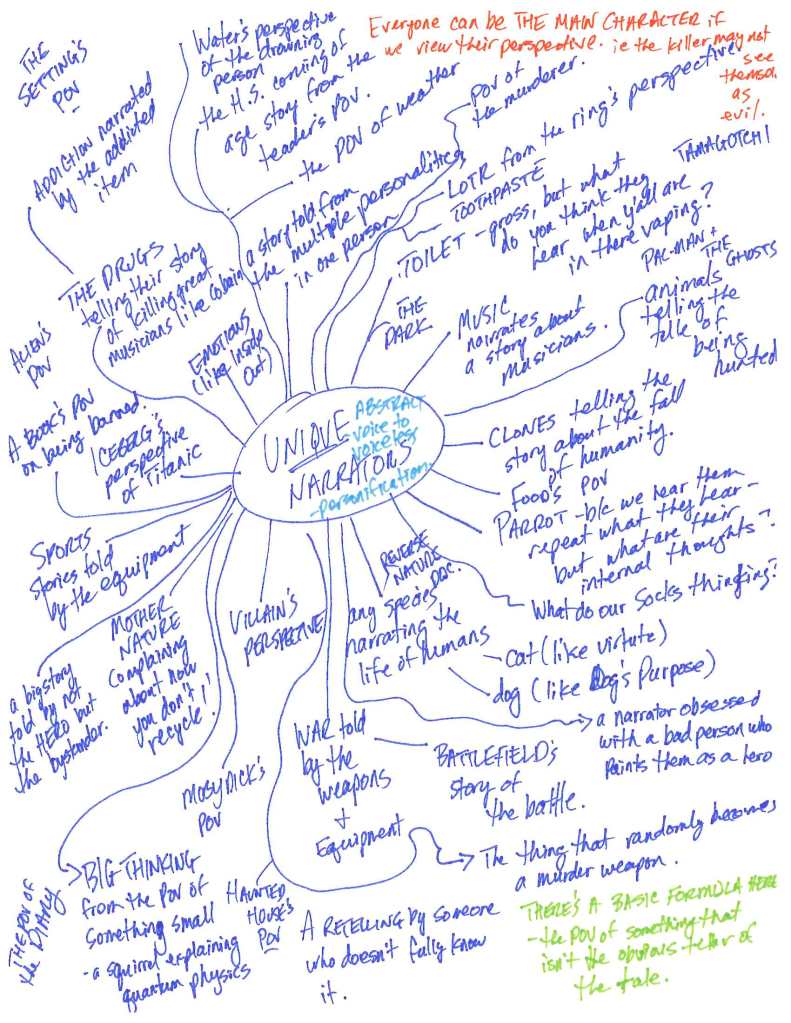 Everyone can be THE MAIN CHARACTER if
we view their perspective. ie the killer may not
see
themselves
as
evil.
THE
SETTING'S
POV
Water's perspective
of the drowning
person
the H.S. coming of
age story from the
teader's POV.
the POV of weather
POV of
the murderer.
LOTR from the ring's perspective
TOOTHPASTE
TAMAGOTCHI
ADDICTION narrated
by the addicted
item
a story told from
the multiple personalities
in one person
TOILET - gross, but what
do you think they
hear when y'all are
in there vaping?
PAC-MAN +
THE
GHOSTS
THE DRUGS
telling their story
of killing great
musicians like Cobain
EMOTIONS
(like Inside
Out)
THE
DARK
MUSIC
narrates
a story about
musicians.
animals
telling the
tale of
being
hunted
ALIEN'S
POV
A BOOK'S POV
on being banned.
ICEBERG'S
perspective
of Titanic
UNIQUE
NARRATORS
ABSTRACT
voice to
voiceless
-personification
CLONES telling the
story about the fall
of humanity.
FOOD'S POV
PARROT - b/c we hear them
repeat what they hear -
but what are their
internal thoughts?
SPORTS
stories told
by the equipment
What do our socks thinking?
REVERSE
NATURE
DOC.
any species
narrating the
life of humans
cat (like virtute)
dog (like Dog's Purpose)
MOTHER
NATURE
complaining
about how
you don't
recycle!
VILLAIN'S
PERSPECTIVE
a big story
told by not
the HERO but
the bystander.
a narrator obsessed
with a bad person who
paints them as a hero
WAR told
by the
weapons
+
Equipment
BATTLEFIELD'S
story of
the battle.
MOBY DICK'S
POV
The thing that randomly becomes
a murder weapon.
THE POV OF
the DIARY
BIG THINKING
from the POV of
something small
- a squirrel explaining
quantum physics
HAUNTED
HOUSE'S
POV
A RETELLING by someone
who doesn't fully know
it.
THERE'S A BASIC FORMULA HERE
- the POV of something that
isn't the obvious teller of
the tale.